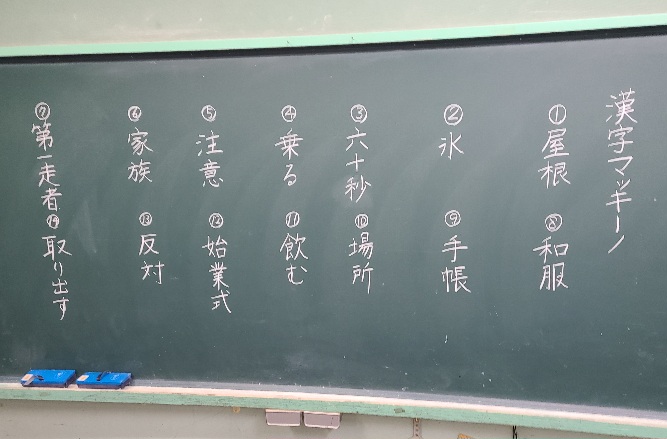 漢字マッキーノ
①屋根
⑧和服
②氷
⑨手帳
③六十秒
⑩場所
④乗る
⑪飲む
⑤注意
⑫始業式
⑥家族
⑬反対
⑦第一走者
⑭取り出す